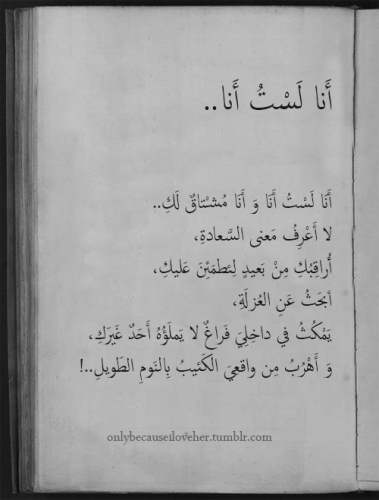 أَنا لَسْتُ أَنا..
أَنَا لَسْتُ أَنَا وَ أَنَا مُشْتاقٌ لَكِ..
لا أَعْرِفُ مَعنى السَّعادةِ،
أُراقِبُكِ مِنْ بَعيدٍ لِتَطمَئِنَ عَليكِ،
أبحَثُ عَنِ العُزلَةِ،
يَمْكُثُ في داخِلِيَ فَراغٌ لا يَملَؤُهُ أَحَدٌ غَيرَكِ،
وَ أَهْرُبُ مِن واقعيَ الكَئيبُ بِالنَومِ الطَويلِ..!
onlybecauseiloveher.tumblr.com